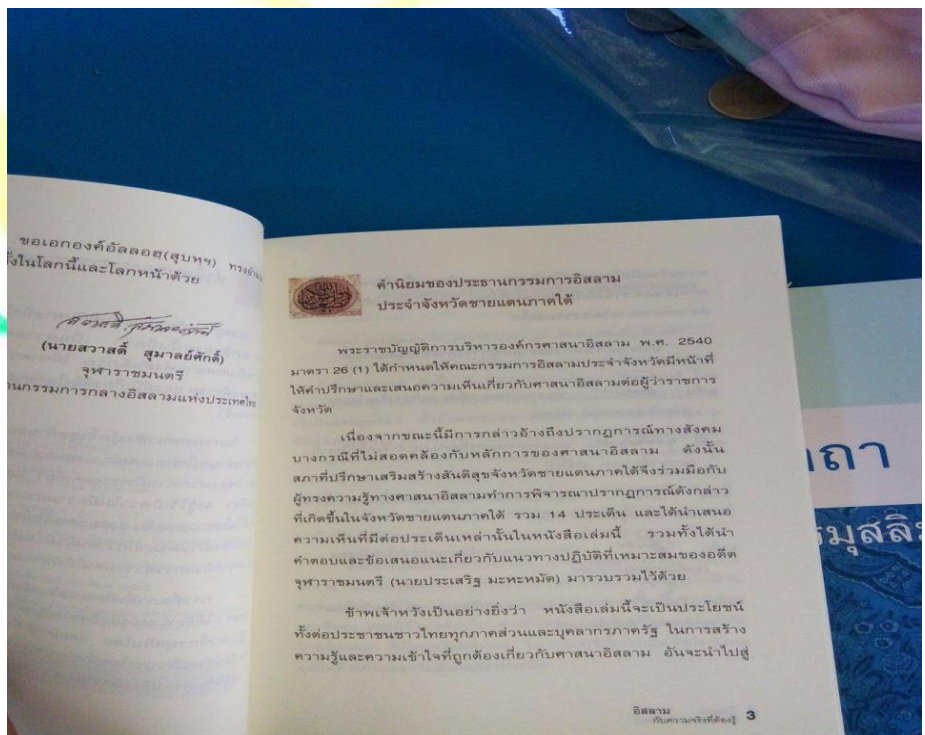 ขอเอกองค์อัลลอฮฺ(สุบหฯ) ทรงอำนวย
ทั้งในโลกนี้และโลกหน้าด้วย
(นายสวาสดิ์ สุมาลย์ศักดิ์)
จุฬาราชมนตรี
านกรรมการกลางอิสลามแห่งประเทศไทย
คำนิยมของประธานกรรมการอิสลาม
ประจำจังหวัดชายแดนภาคใต้
พระราชบัญญัติการบริหารองค์กรศาสนาอิสลาม พ.ศ. 2540
มาตรา 26 (1) ได้กำหนดให้คณะกรรมการอิสลามประจำจังหวัดมีหน้าที่
ให้คำปรึกษาและเสนอความเห็นเกี่ยวกับศาสนาอิสลามต่อผู้ว่าราชการ
จังหวัด
เนื่องจากขณะนี้มีการกล่าวอ้างถึงปรากฏการณ์ทางสังคม
บางกรณีที่ไม่สอดคล้องกับหลักการของศาสนาอิสลาม ดังนั้น
สภาที่ปรึกษาเสริมสร้างสันติสุขจังหวัดชายแดนภาคใต้จึงร่วมมือกับ
ผู้ทรงความรู้ทางศาสนาอิสลามทำการพิจารณาปรากฏการณ์ดังกล่าว
ที่เกิดขึ้นในจังหวัดชายแดนภาคใต้ รวม 14 ประเด็น และได้นำเสนอ
ความเห็นที่มีต่อประเด็นเหล่านั้นในหนังสือเล่มนี้ รวมทั้งได้นำ
คำตอบและข้อเสนอแนะเกี่ยวกับแนวทางปฏิบัติที่เหมาะสมของอดีต
จุฬาราชมนตรี (นายประเสริฐ มะหะหมัด) มารวบรวมไว้ด้วย
ข้าพเจ้าหวังเป็นอย่างยิ่งว่า หนังสือเล่มนี้จะเป็นประโยชน์
ทั้งต่อประชาชนชาวไทยทุกภาคส่วนและบุคลากรภาครัฐ ในการสร้าง
ความรู้และความเข้าใจที่ถูกต้องเกี่ยวกับศาสนาอิสลาม อันจะนำไปสู่
อิสลาม
กับความจริงที่ต้องรู้ 3
าถา
รมุสลิม